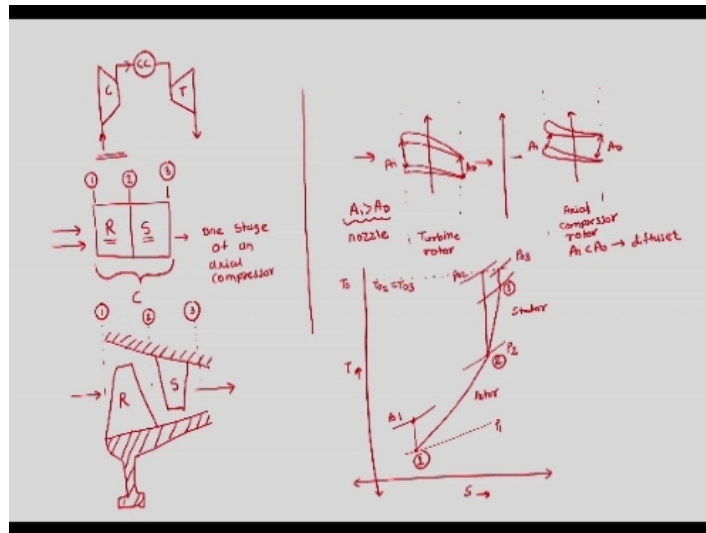 C
CC
T
① ② ③
R S
one stage
of an
axial
compressor
C
① ② ③
R
S
Ai
Ao
Ai > Ao
nozzle
Turbine
rotor
Ai
Ao
Axial
compressor
rotor
Ai < Ao → diffuser
To
T02 = T03
P02
P03
③
Stator
P2
②
T
Rotor
P01
P1
①
S →